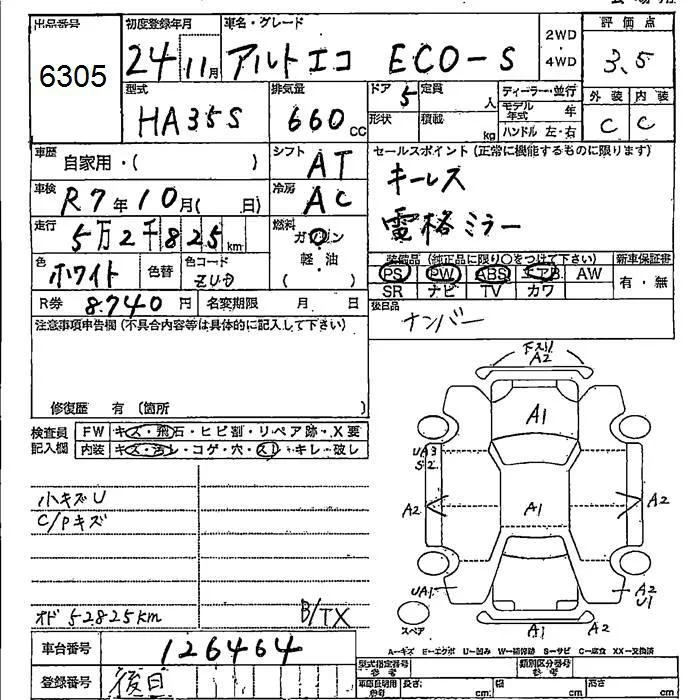 出品番号 初度登録年月 車名・グレード 評価点
6305 24 11月 アルトエコ ECO-S 2WD・4WD 3.5
型式 排気量 ドア 定員 ディーラー・並行 外装 内装
HA35S 660cc 5 人 モデル年式 年 C C
形状 積載 kg ハンドル 左・右
車歴 自家用・( ) シフト AT セールスポイント(正常に機能するものに限ります)
車検 R7年10月( 日) 冷房 AC キーレス
走行 5万2千825km 燃料 ガソリン 電格ミラー
軽油
( )
色 ホワイト 色替 色コード ZUD
装備品(純正品に限り〇をつけて下さい) 新車保証書
PS PW ABS エアB AW 有・無
SR ナビ TV カワ
R券 8,740円 名変期限 月 日 後日品 ナンバー
注意事項申告欄(不具合内容等は具体的に記入して下さい)
修復歴 有 (箇所 )
検査員記入欄 FW キズ・飛石・ヒビ割・リペア跡・X要
内装 キズ・汚レ・コゲ・穴・スレ・キレ・破レ
小キズU
C/Pキズ
オド 52825km B/TX
下スリ
A2
A1
UA3
S2
A2 A1 A2
UA1 A2
U1
スペア A1 A2
A-キズ E-エクボ U-凹み W-補修跡 S-サビ C-腐食 XX-交換済
車台番号 126464
登録番号 後日
型式指定番号 参考 類別区分番号 参考
車庫証明用 参考 長さ: cm 幅: cm 高さ: cm